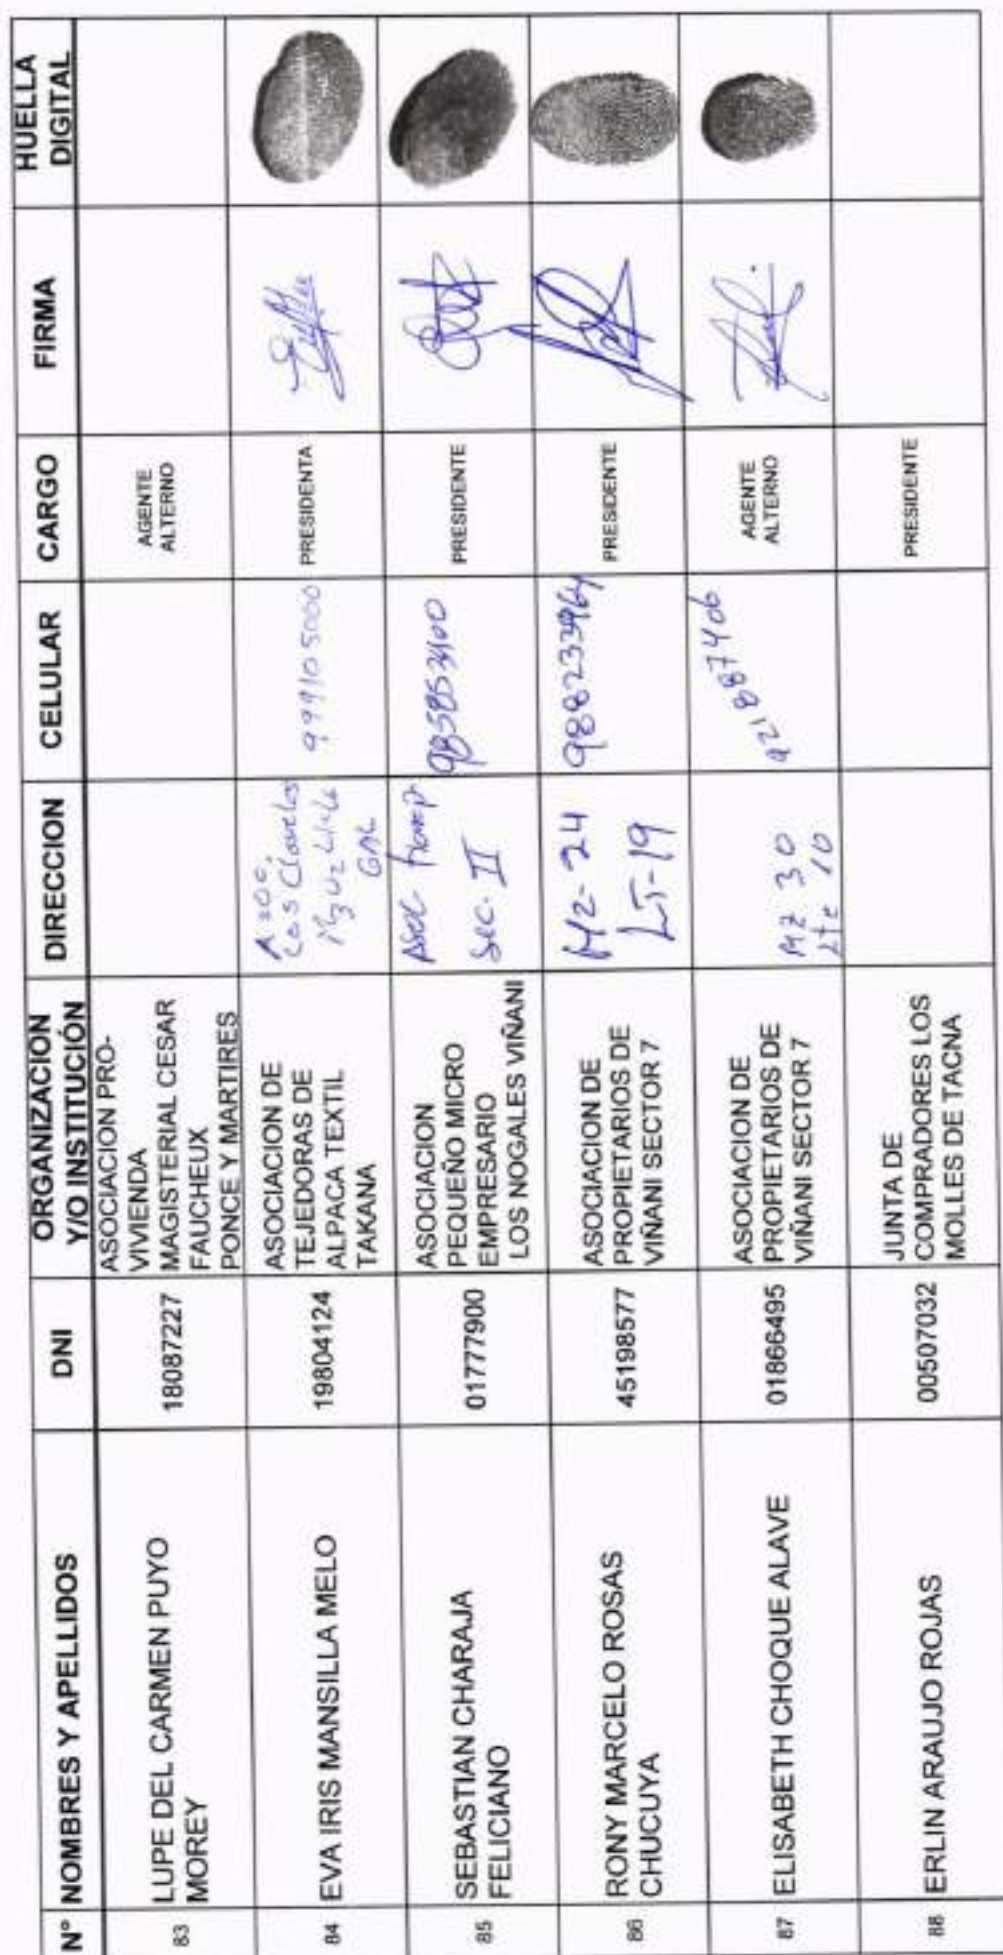 N° NOMBRES Y APELLIDOS DNI ORGANIZACION Y/O INSTITUCIÓN DIRECCION CELULAR CARGO FIRMA HUELLA DIGITAL
83 LUPE DEL CARMEN PUYO MOREY 18087227 ASOCIACION PRO-
VIVIENDA
MAGISTERIAL CESAR
FAUCHEUX
PONCE Y MARTIRES
AGENTE
ALTERNO
84 EVA IRIS MANSILLA MELO 19804124 ASOCIACION DE
TEJEDORAS DE
ALPACA TEXTIL
TAKANA
Los Claveles
999105000 PRESIDENTA
85 SEBASTIAN CHARAJA
FELICIANO
01777900
ASOCIACION
PEQUEÑO MICRO
EMPRESARIO
LOS NOGALES VIÑANI
Asoc
Sec. II
PRESIDENTE
86 RONY MARCELO ROSAS
CHUCUYA
45198577
ASOCIACION DE
PROPIETARIOS DE
VIÑANI SECTOR 7
Mz-24
LT-19
PRESIDENTE
87 ELISABETH CHOQUE ALAVE 01866495
ASOCIACION DE
PROPIETARIOS DE
VIÑANI SECTOR 7
Mz 30
Lte 10
921887406
AGENTE
ALTERNO
88 ERLIN ARAUJO ROJAS 00507032
JUNTA DE
COMPRADORES LOS
MOLLES DE TACNA
PRESIDENTE